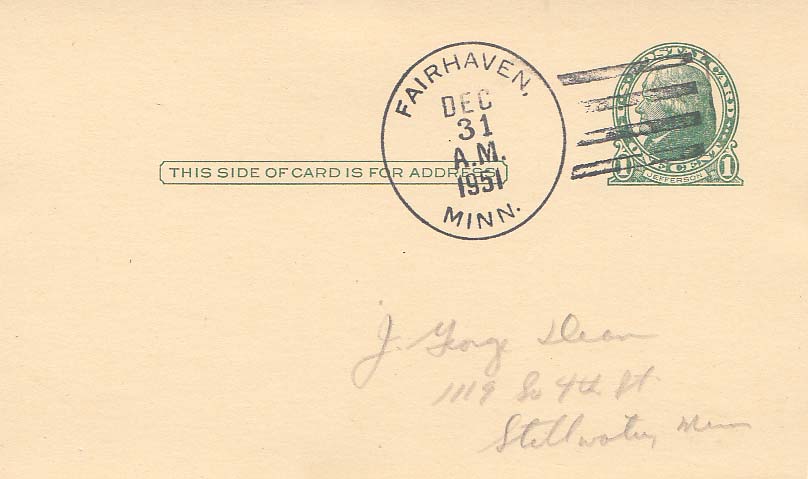 FAIRHAVEN,
DEC
31
A.M.
1951
MINN.
U.S. POSTAL CARD
ONE CENT
1 1
JEFFERSON
THIS SIDE OF CARD IS FOR ADDRESS
J. George Dean
1119 So 4th St
Stillwater, Minn